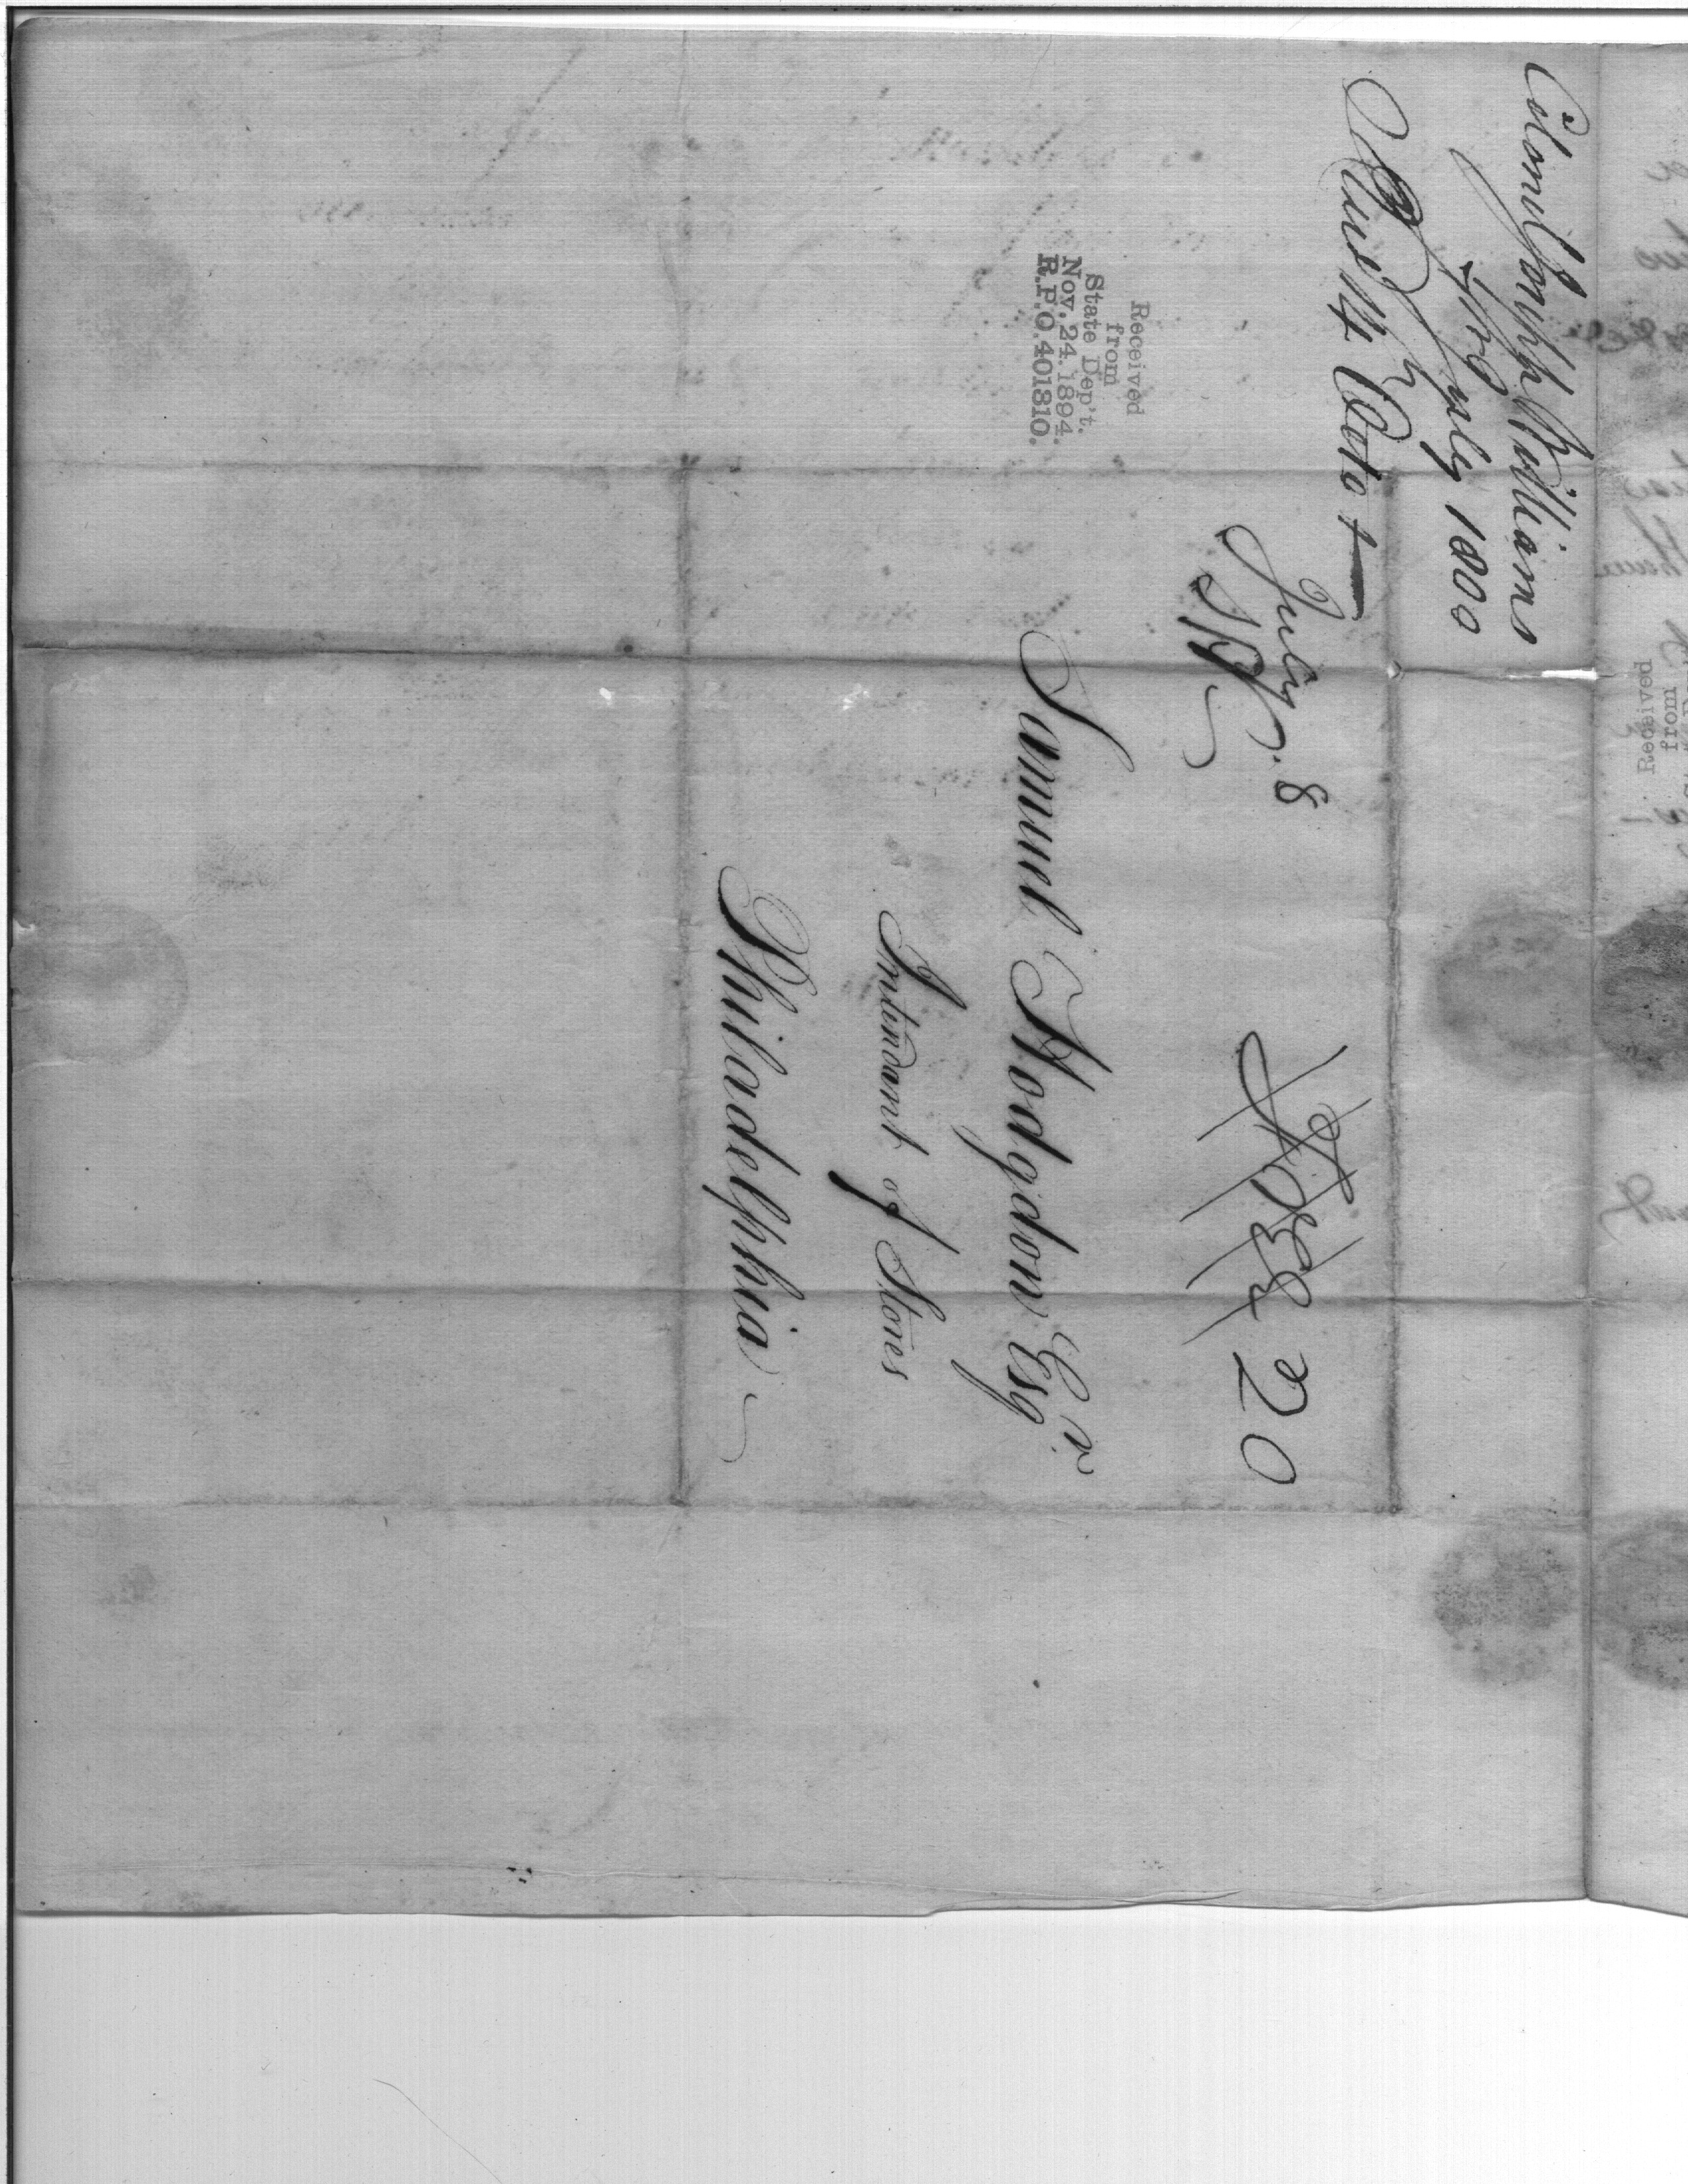 Colonel Joseph Williams
July 1800
Rec'd 14 Octo
July. 8
Free 20
Samuel Hodgdon Esqr.
Intendant of Stores
Philadelphia
Received
from
State Dep't.
Nov. 24. 1894.
R.P.O. 401810.
Received
from